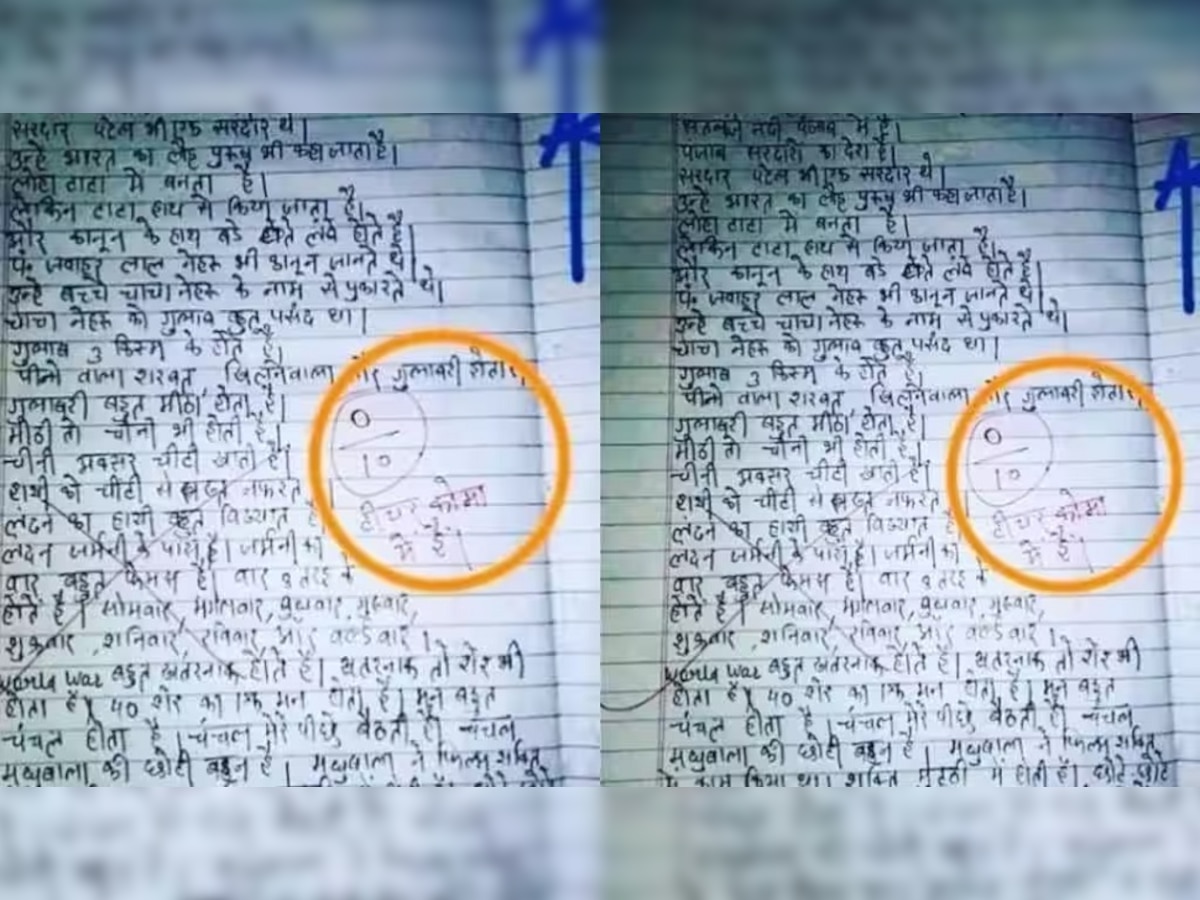 सरदार पटेल भी एक सरदार थे।
उन्हे भारत का लौह पुरुष भी कहा जाता है।
लोहा टाटा में बनता है।
लेकिन टाटा हाथ से किया जाता है।
और कानून के हाथ बडे होते लंबे होते है।
पं. जवाहर लाल नेहरू भी कानून जानते थे।
उन्हे बच्चे चाचा नेहरू के नाम से पुकारते थे।
चाचा नेहरू को गुलाब बहुत पसंद था।
गुलाब 3 किस्म के होते है
पीने वाला शरबत खिलनेवाला और गुलाबरी होता
गुलाबरी बहुत मीठा होता है।
मीठी तो चीनी भी होती है।
चीनी अक्सर चीटी खाती है।
हाथी को चीटी से सख्त नफरत
लंदन का हाथी बहुत विख्यात है
लंदन जर्मनी के पास है। जर्मनी का
वार बहुत फेमस है। वार 8 तरह के
होते है। सोमवार, मंगलवार, बुधवार, गुरुवार,
शुक्रवार, शनिवार, रविवार, और वर्ल्ड वार।
World War बहुत खतरनाक होते है। खतरनाक तो शेर भी
होता है। 40 शेर का एक मन होता है। मन बहुत
चंचल होता है। चंचल मेरे पीछे बैठती है। चंचल
मधुबाला की छोटी बहन है। मधुबाला ने फिल्म शक्ति
0
10
टीचर कोमा
में है।
पंजाब सरदारो का देश है।
सरदार पटेल भी एक सरदार थे।
उन्हे भारत का लौह पुरुष भी कहा जाता है।
लोहा टाटा में बनता है।
लेकिन टाटा हाथ से किया जाता है।
और कानून के हाथ बडे होते लंबे होते है।
पं. जवाहर लाल नेहरू भी कानून जानते थे।
उन्हे बच्चे चाचा नेहरू के नाम से पुकारते थे।
चाचा नेहरू को गुलाब बहुत पसंद था।
गुलाब 3 किस्म के होते है
पीने वाला शरबत खिलनेवाला और गुलाबरी होता
गुलाबरी बहुत मीठा होता है।
मीठी तो चीनी भी होती है।
चीनी अक्सर चीटी खाती है।
हाथी को चीटी से सख्त नफरत
लंदन का हाथी बहुत विख्यात है
लंदन जर्मनी के पास है। जर्मनी का
वार बहुत फेमस है। वार 8 तरह के
होते है। सोमवार, मंगलवार, बुधवार, गुरुवार,
शुक्रवार, शनिवार, रविवार, और वर्ल्ड वार।
World War बहुत खतरनाक होते है। खतरनाक तो शेर भी
होता है। 40 शेर का एक मन होता है। मन बहुत
चंचल होता है। चंचल मेरे पीछे बैठती है। चंचल
मधुबाला की छोटी बहन है। मधुबाला ने फिल्म शक्ति
में काम किया था। शक्ति मुट्ठी में होती है। छोटे छोटे
0
10
टीचर कोमा
में है।